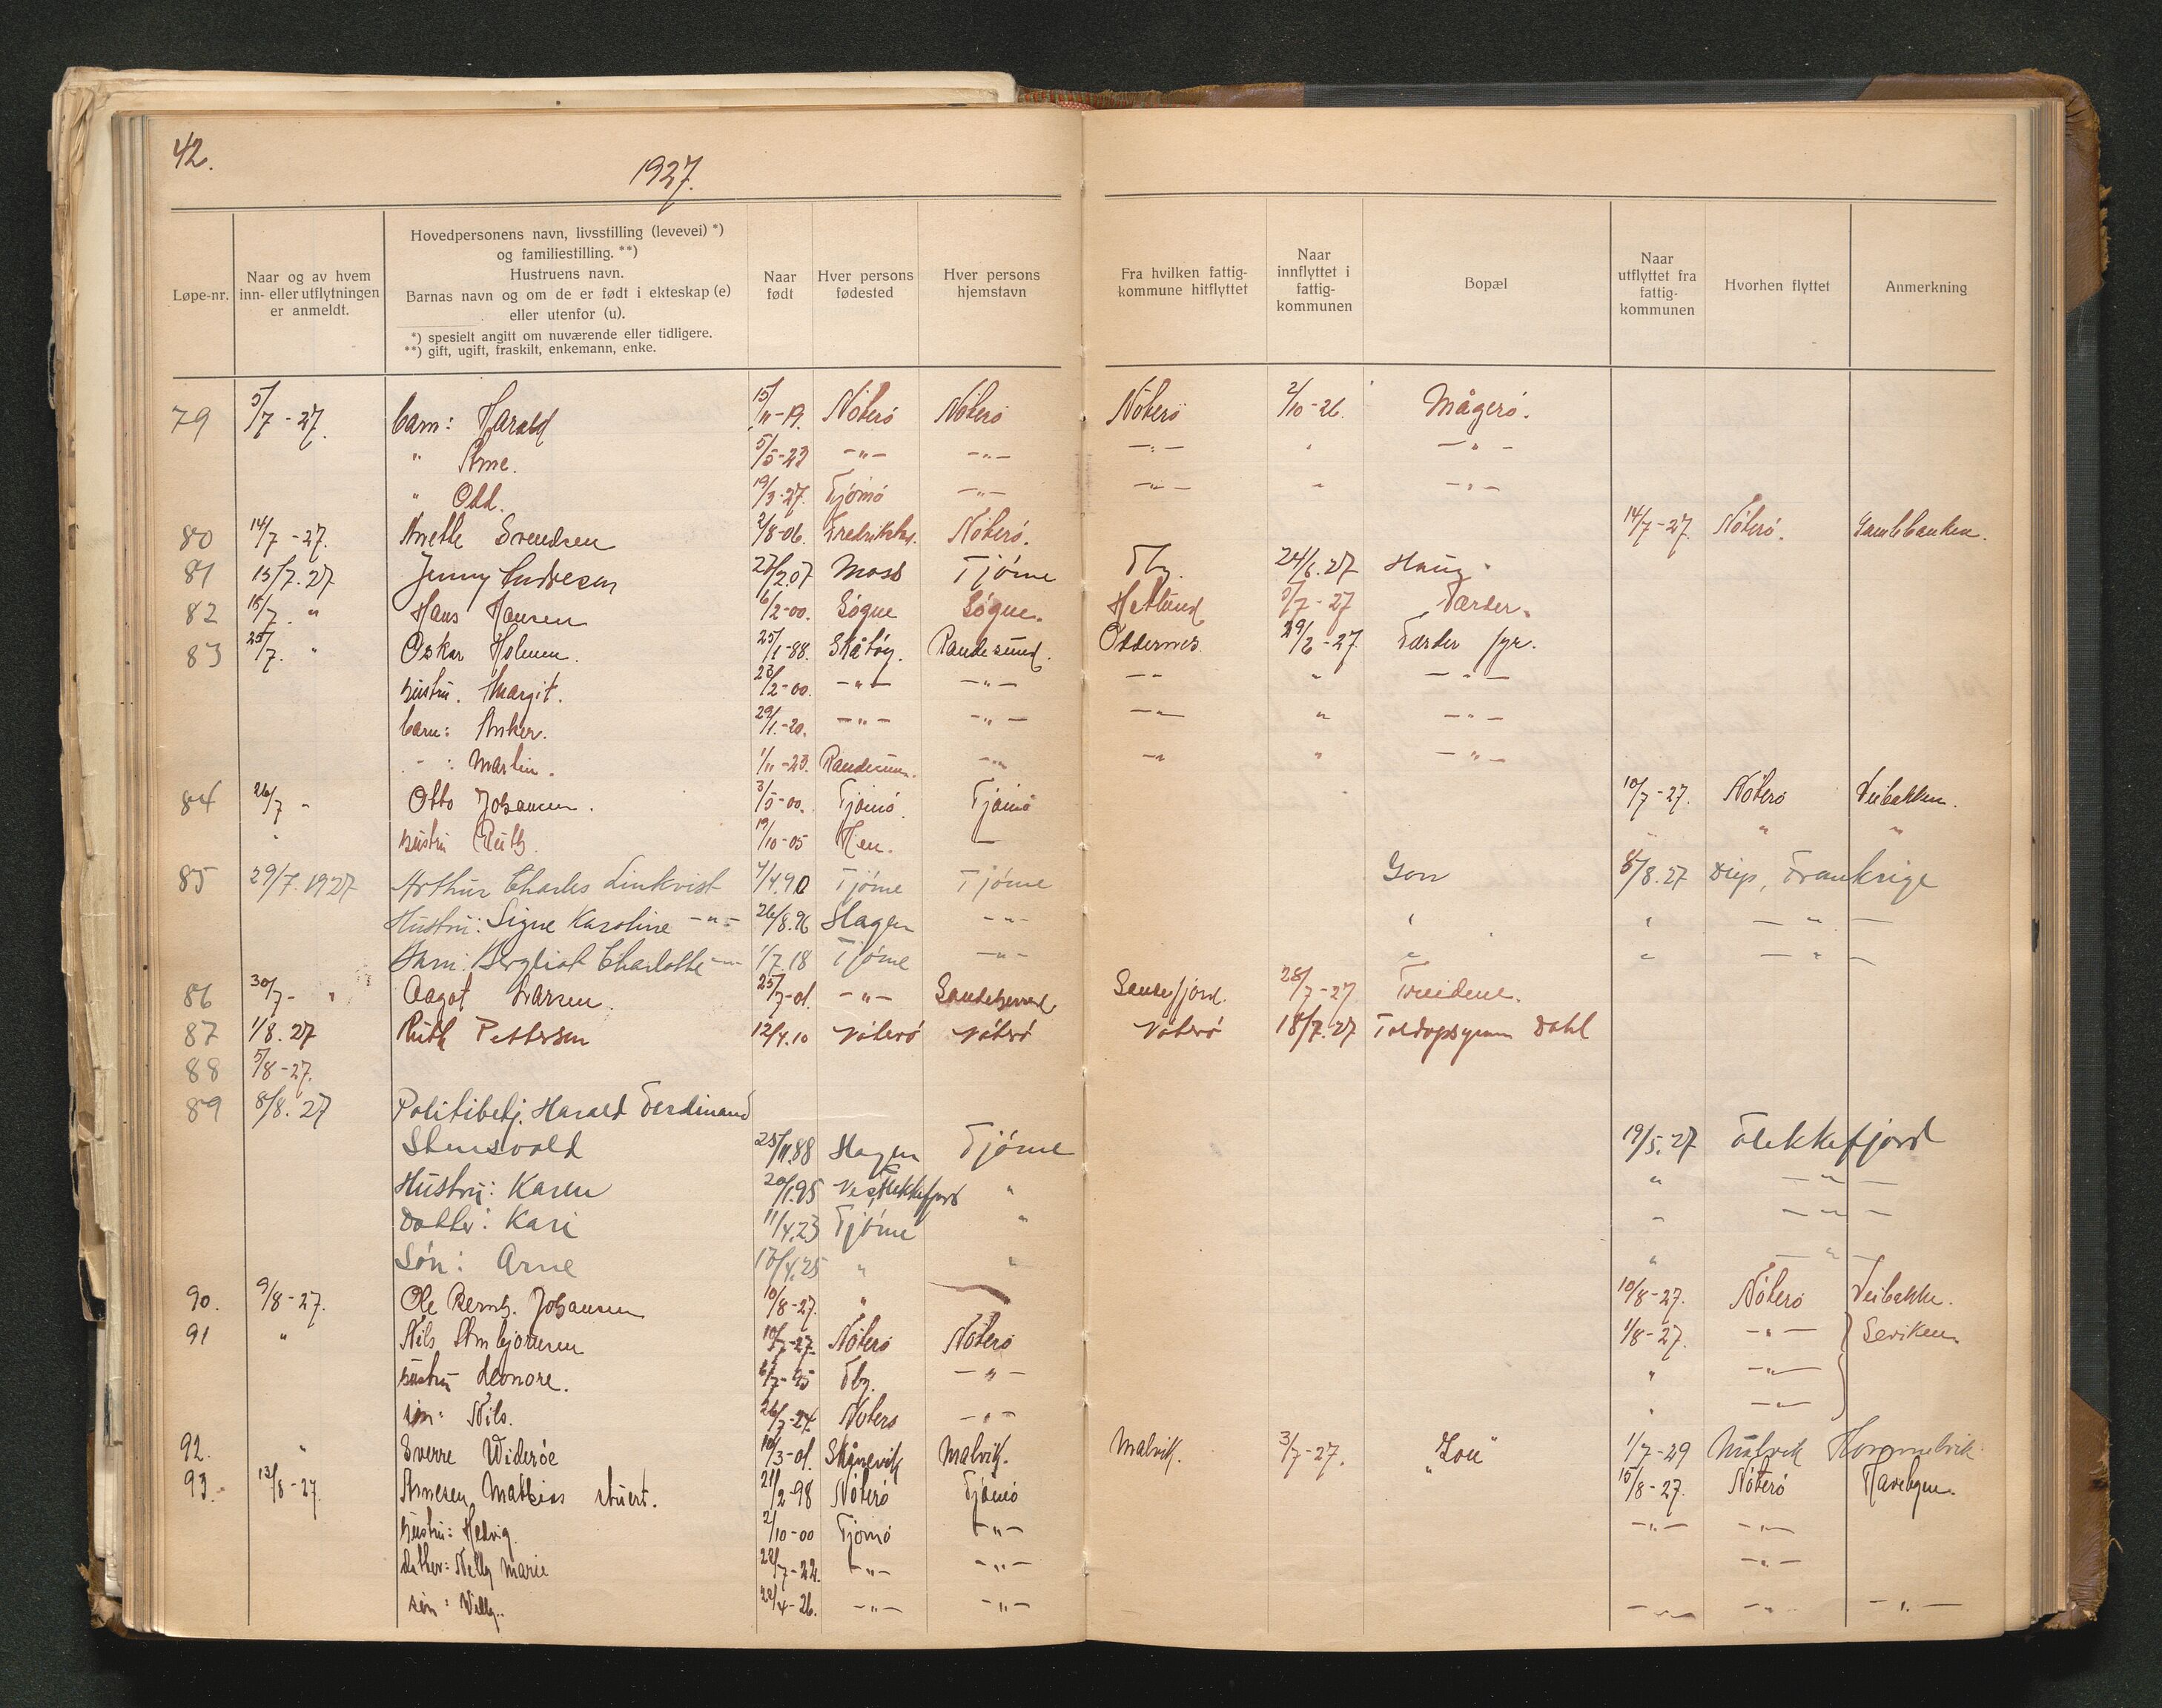 42.
1927.
Løpe-nr.
Naar og av hvem
inn- eller utflytningen
er anmeldt.
Hovedpersonens navn, livsstilling (levevei) *)
og familiestilling. **)
Hustruens navn.
Barnas navn og om de er født i ekteskap (e)
eller utenfor (u).
*) spesielt angitt om nuværende eller tidligere.
**) gift, ugift, fraskilt, enkemann, enke.
Naar
født
Hver persons
fødested
Hver persons
hjemstavn
Fra hvilken fattig-
kommune hitflyttet
Naar
innflyttet i
fattig-
kommunen
Bopæl
Naar
utflyttet fra
fattig-
kommunen
Hvorhen flyttet
Anmerkning
79 5/7-27. barn: Harald 15/11-19. Nøterö Nøterö Nøterö 2/10-26. Mågerö.
" Arne. 5/5-23 -"- -"- -"- " -"-
" Odd. 19/3-27. Tjömö -"- -"- " -"-
80 14/7-27. Anette Svendsen 2/8-06. Nøterö. 14/7-27. Nøterö.
81 15/7.27 Jenny Andresen 27/2.07 Moss Tjöme Tbg. 24/6.27 Haug
82 15/7. " Hans Hansen 6/2-00. Søgne Søgne. Hetland 5/7-27 Færder.
83 25/7. " Oskar Holmen. 25/1-88. Skåtøy. Randesund. Oddernes 29/6-27. Færder fyr.
hustru. Margit. 23/2-00. -"- -"- -"- " -"-
barn: Anker. 29/1-20. -"- -"- -"- " -"-
- : Martin. 1/11-23. Randesun. -"- -"- " -"-
84 26/7 - Otto Johansen. 3/5-00. Tjømö. Tjømö 10/7-27. Nøterö Veibakken.
" hustru Ruth. 19/10-05 " " "
85 29/7.1927 Arthur Charles Linkvist 4/4.90 Tjöme Tjöme Gon 8/8.27 Diep, Frankrige
Hustru: Signe Karoline -"- 26/8.96 Slagen -"- " " -"-
Barn: Bergliot Charlotte -"- 1/7.18 Tjöme -"- " " -"-
86 30/7- " Aagot Larsen. 25/7-01. -"- Sandeherred Sandefjord. 28/7-27
87 1/8.27 Ruth Pettersen 12/4.10 Nøterö Nøterö Nøterö 18/7.27 Toldopsynm Dahl
88 5/8-27.
89 8/8.27 Politibetj. Harald Ferdinand
Stensvold 25/11.88 Slagen Tjöme 19/5.27 Flekkefjord
Hustru: Karen 20/1.95 " " -"-
Datter: Kari 11/4.23 Tjöme " " -"-
Søn: Arne 17/4.25 " " " -"-
90. 9/8-27. Ole Bernh. Johansen 10/8-27. " 10/8-27. Nøterö Veibakke.
91 " Nils Arnbjørnsen Nøterö Nøterö 1/8-27. -"-
hustru Leonore. Tbg. -"- " -"-
søn: Nils. 26/7-24. Nøterö -"- " -"-
92. " Sverre Widerøe 10/3-01. Skånevik Malvik. Malvik. 3/7-27. "Lou" 1/7-29 Malvik Hommelvik
93. 13/8-27. Arnesen, Mathias stuert. 21/2-98 Nøterö Tjømö 15/8-27. Nøterö
hustru: Hedvig. 2/10-00 Tjømö -"- -"- -"-
datter: Nelly Marie 28/7-22. -"- -"- -"-
søn: Willy. 22/4-26. -"- -"- -"- -"- -"-